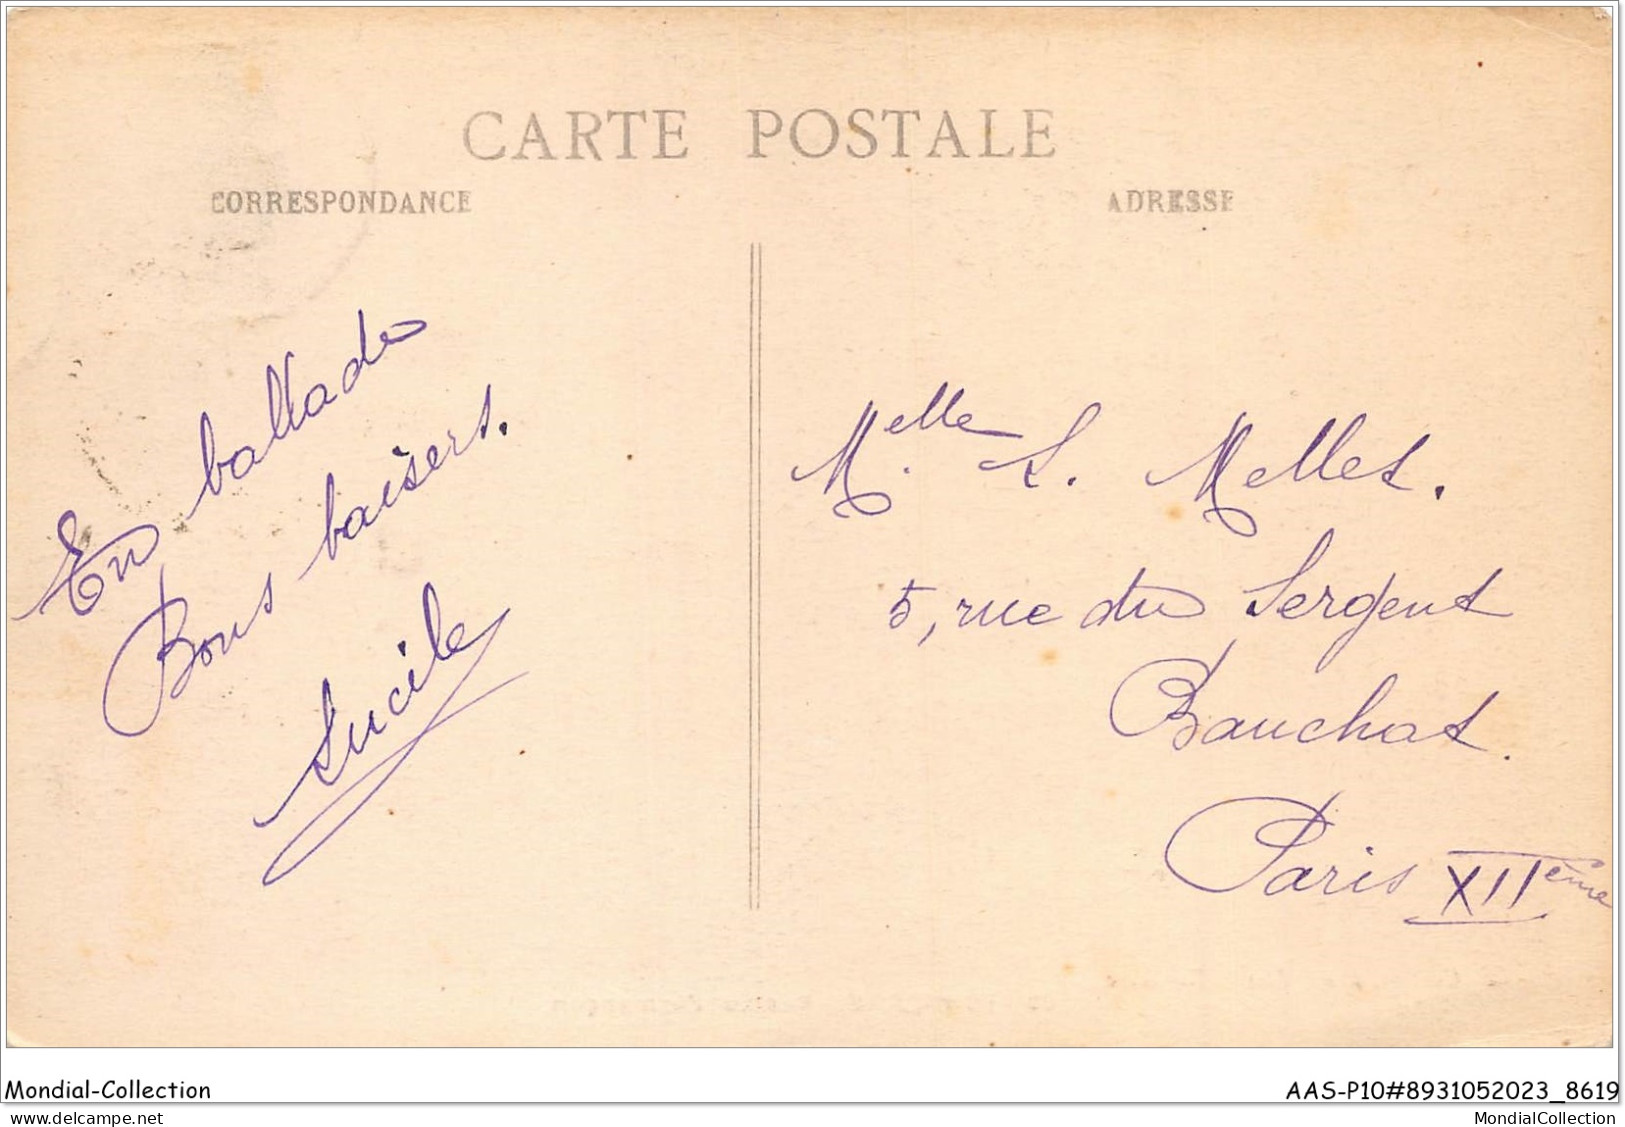 CARTE POSTALE
CORRESPONDANCE
ADRESSE
En ballade
Bons baisers.
Lucile
Melle. S. Mellet.
5, rue du Sergent
Bauchat.
Paris XIIème
Mondial-Collection
AAS-P10#8931052023_8619
MondialCollection